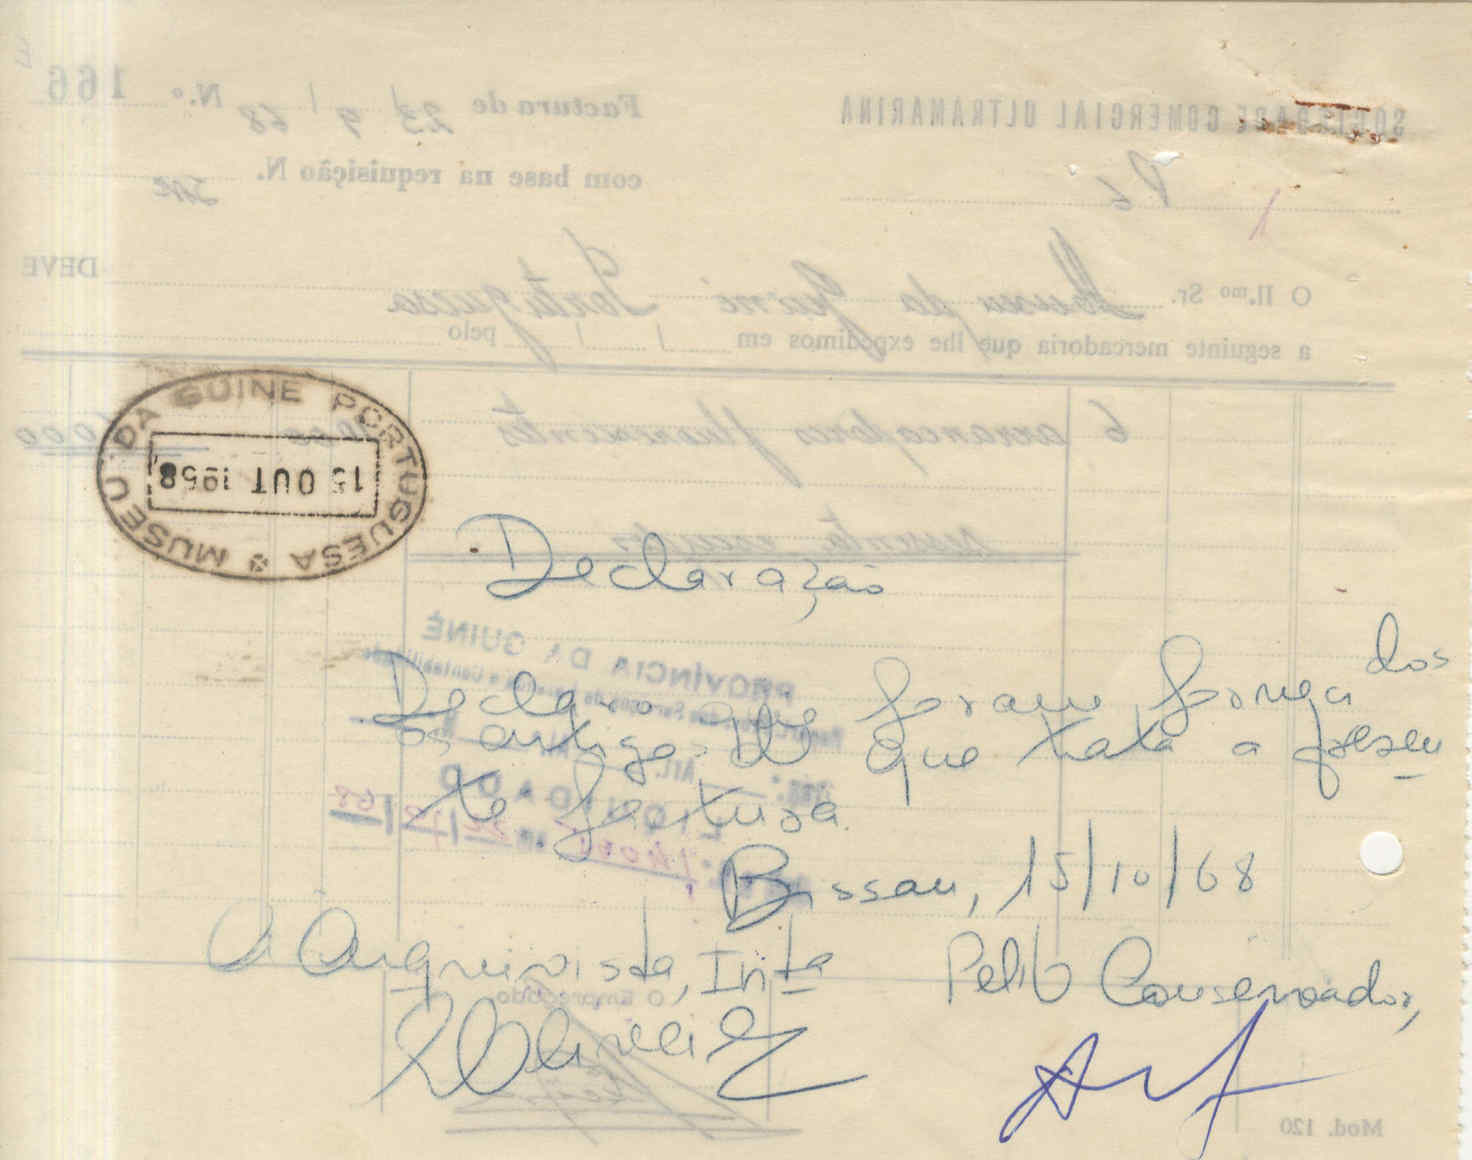 MUSEU DA GUINÉ PORTUGUESA
15 OUT 1968
Declaração
Declaro que foram forneci dos
os artigos de que trata a presen
te factura.
Bissau, 15/10/68
O Arquivista, Int.
Pelo Conservador,
SOCIEDADE COMERCIAL ULTRAMARINA
Factura de 23 / 9 / 68 N.º 166
com base na requisição N.
O Il.mo Sr. Museu da Guiné Portuguesa DEVE
a seguinte mercadoria que lhe expedimos em / / pelo
6 arrancadores fluorescentes
sessenta escudos
PROVÍNCIA DA GUINÉ
LIQUIDADO
O Empregado
Mod. 120